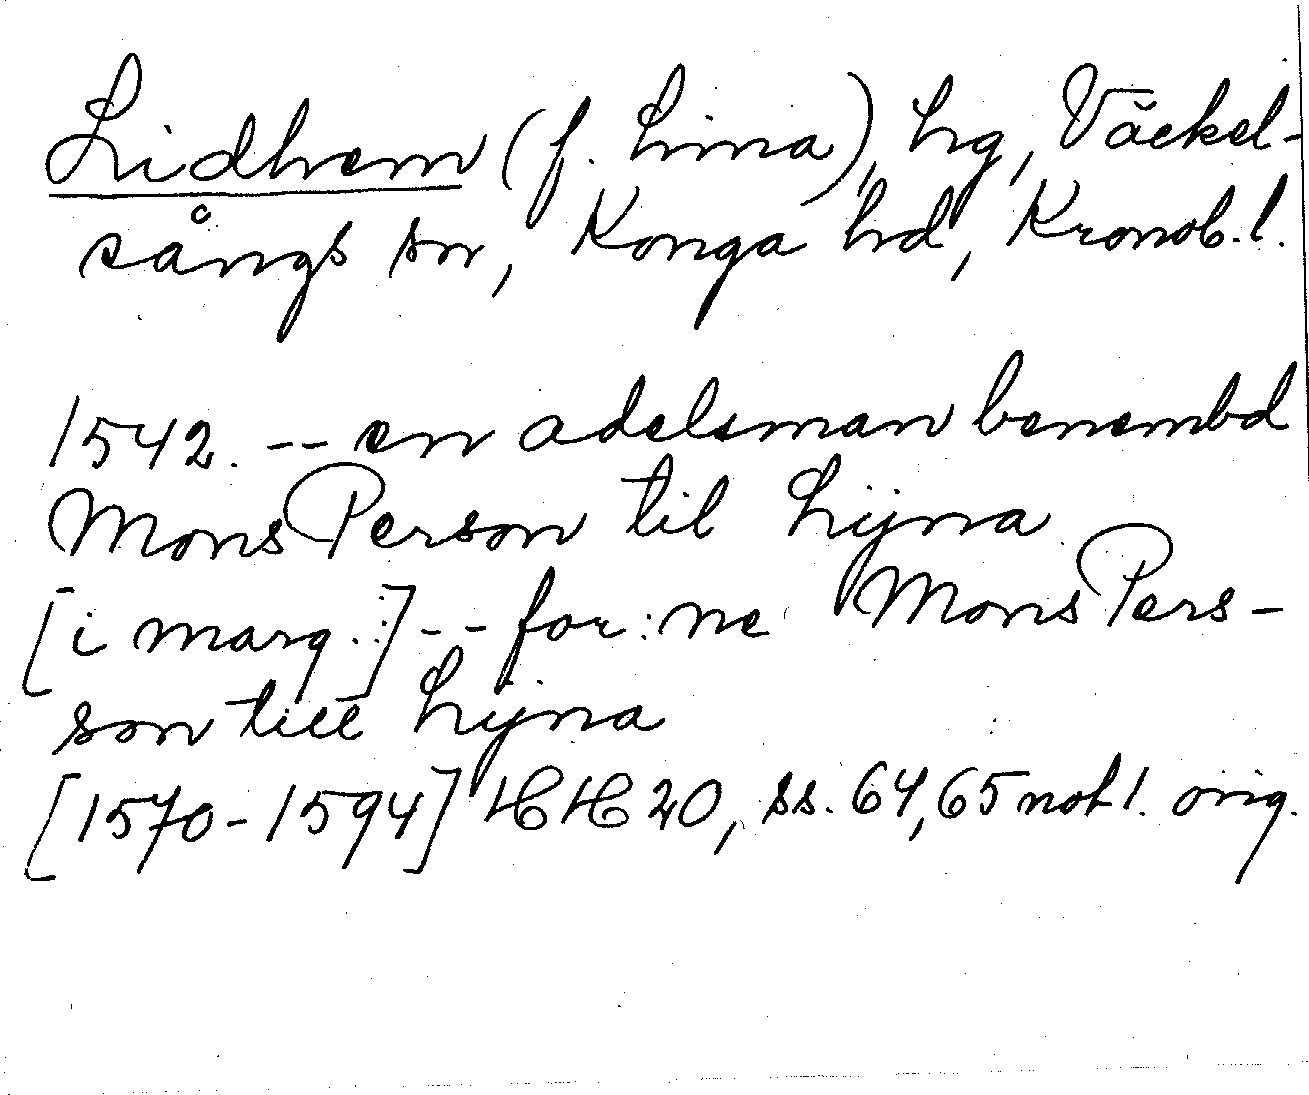 Lidhem (f. Lina), hg, Väckel-
sångs sn, Konga hd, Kronob. l.
1542. -- en adelsman benembd
Mons Person til Lijna
[i marg.:] -- for:ne Mons Pers-
son till Lijna
[1570-1594] HH 20, ss. 64, 65 not 1. orig.